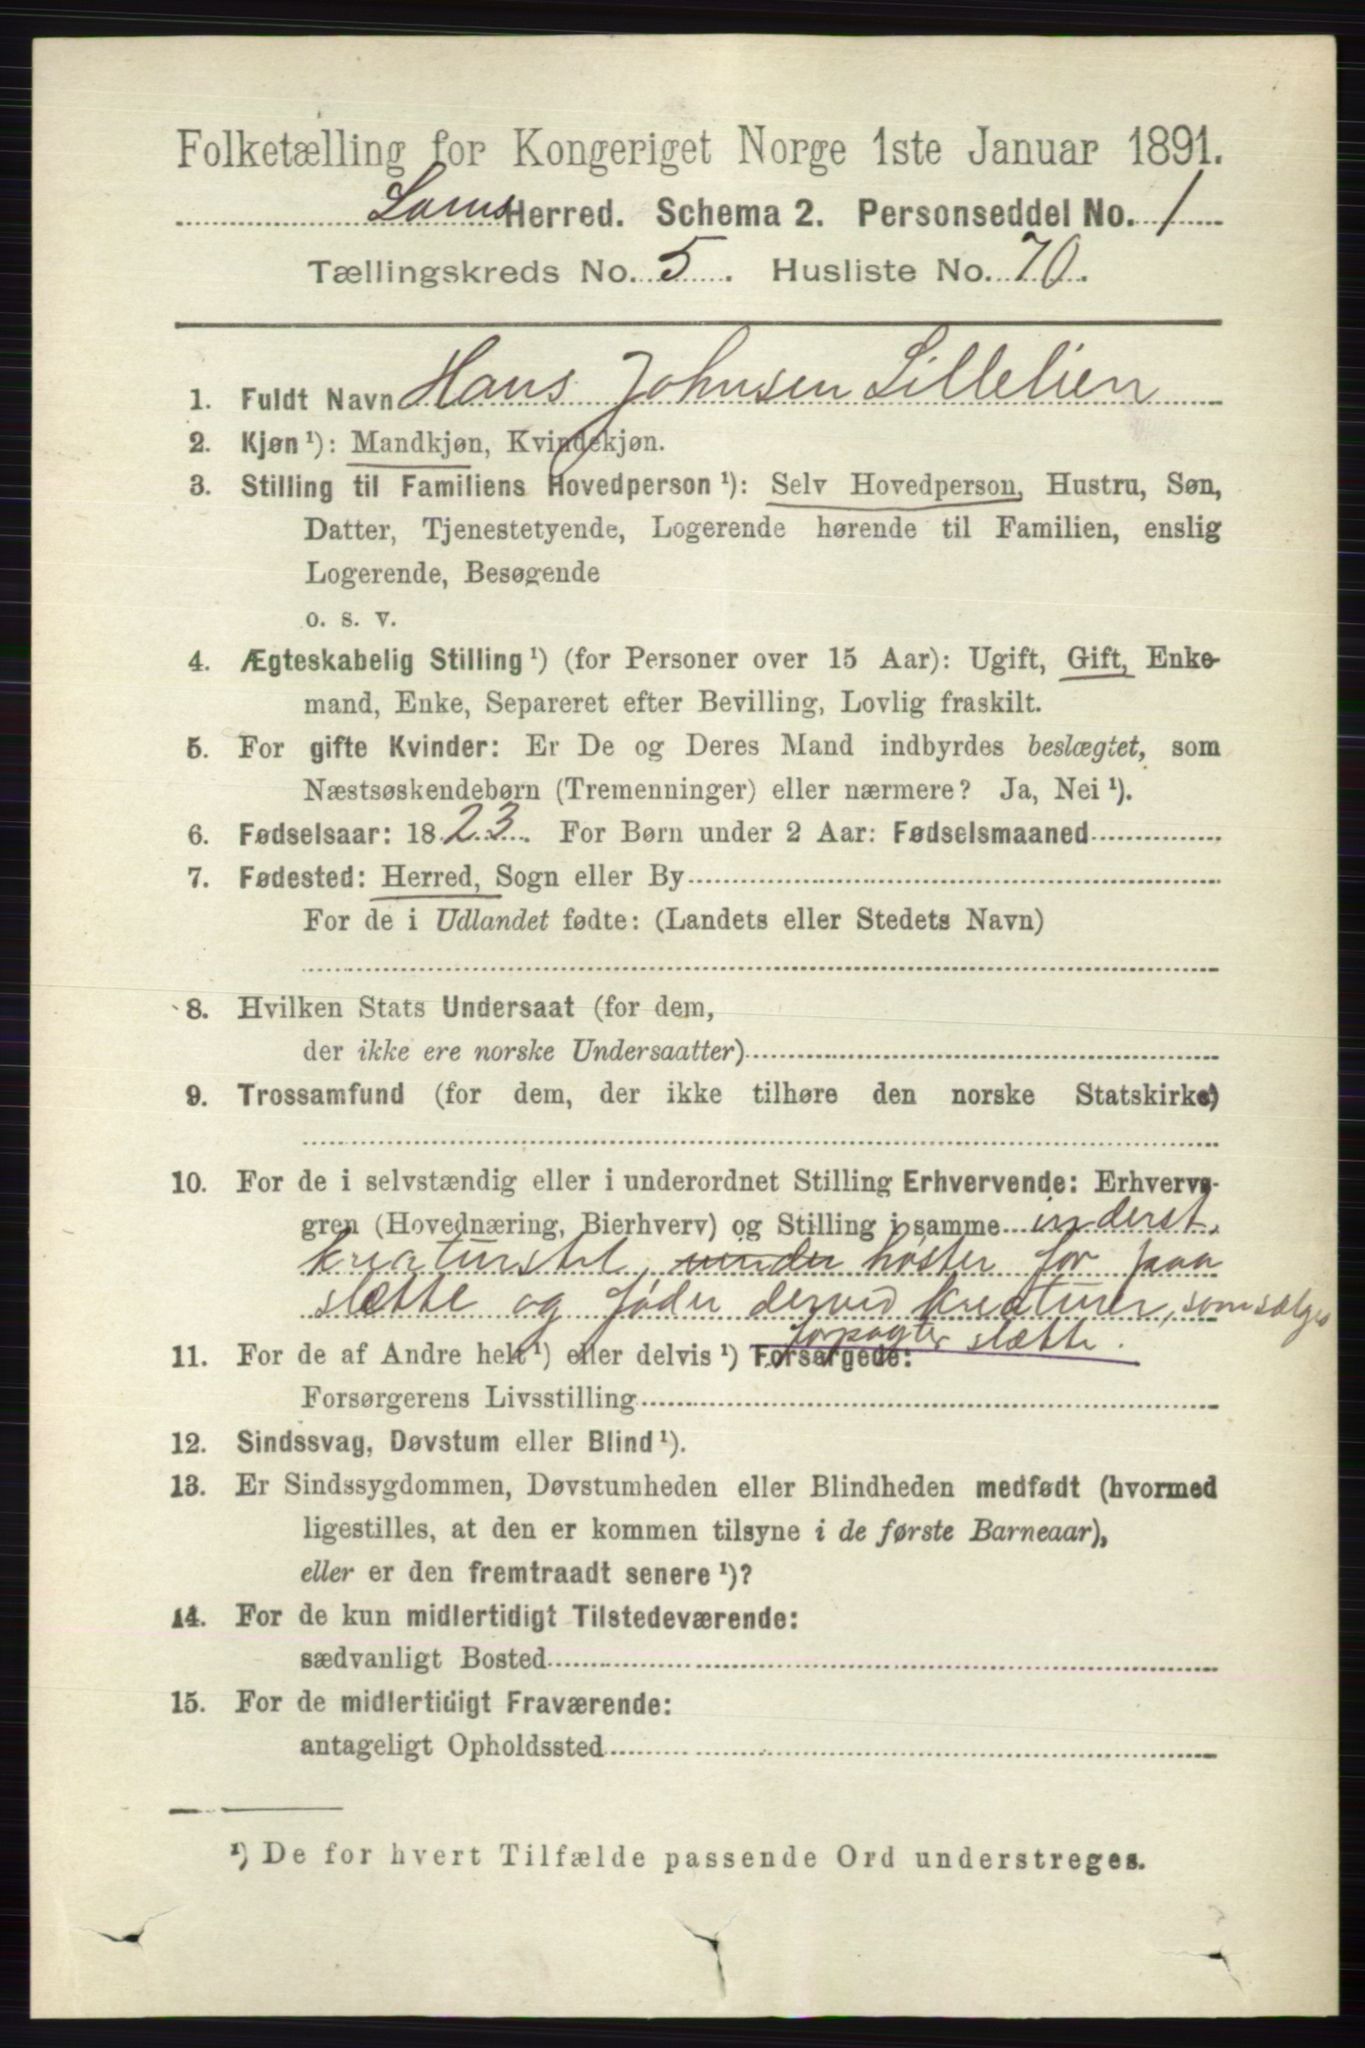 Folketælling for Kongeriget Norge 1ste Januar 1891.
Loms Herred. Schema 2. Personseddel No. 1
Tællingskreds No. 5. Husliste No. 70.
1. Fuldt Navn Hans Johnsen Lillelien
2. Kjøn ¹): Mandkjøn, Kvindekjøn.
3. Stilling til Familiens Hovedperson ¹): Selv Hovedperson, Hustru, Søn,
Datter, Tjenestetyende, Logerende hørende til Familien, enslig
Logerende, Besøgende
o. s. v.
4. Ægteskabelig Stilling ¹) (for Personer over 15 Aar): Ugift, Gift, Enke-
mand, Enke, Separeret efter Bevilling, Lovlig fraskilt.
5. For gifte Kvinder: Er De og Deres Mand indbyrdes beslægtet, som
Næstsøskendebørn (Tremenninger) eller nærmere? Ja, Nei ¹).
6. Fødselsaar: 1823. For Børn under 2 Aar: Fødselsmaaned
7. Fødested: Herred, Sogn eller By
For de i Udlandet fødte: (Landets eller Stedets Navn)
8. Hvilken Stats Undersaat (for dem,
der ikke ere norske Undersaatter)
9. Trossamfund (for dem, der ikke tilhøre den norske Statskirke)
10. For de i selvstændig eller i underordnet Stilling Erhvervende: Erhvervs-
gren (Hovednæring, Bierhverv) og Stilling i samme inderst,
kreaturstel, høster for paa
slætte og føder derved kreaturer, som sælges
forpagter slætte.
11. For de af Andre helt ¹) eller delvis ¹) Forsørgede:
Forsørgerens Livsstilling
12. Sindssvag, Døvstum eller Blind ¹).
13. Er Sindssygdommen, Døvstumheden eller Blindheden medfødt (hvormed
ligestilles, at den er kommen tilsyne i de første Barneaar),
eller er den fremtraadt senere ¹)?
14. For de kun midlertidigt Tilstedeværende:
sædvanligt Bosted
15. For de midlertidigt Fraværende:
antageligt Opholdssted
¹) De for hvert Tilfælde passende Ord understreges.